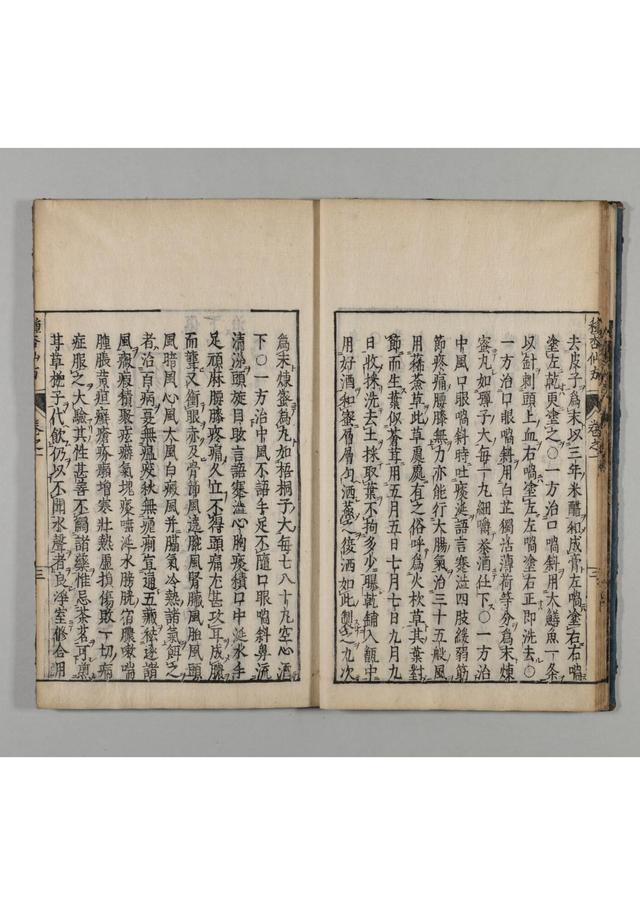 種杏仙方 卷之一 三
去皮子爲末以三年米醋和成膏左喎塗右右喎
塗左就更塗之○一方治口喎斜用大鱔魚一条
以針刺頭上血右喎塗左左喎塗右正即洗去○
一方治口眼喎斜用白芷獨活薄荷等分爲末煉
蜜丸如彈子大每一丸細嚼茶酒任下○一方治
中風口眼喎斜時吐痰涎語言蹇澁四肢緩弱筋
節疼痛腰膝無力亦能行大腸氣治三十五般風
用豨薟草此草處處有之俗呼爲火杴草其葉對
節而生葉似蒼耳用五月五日七月七日九月九
日收採洗去土採取葉不拘多少曬乾鋪入甑中
用好酒和蜜層層勻洒蒸之後洒如此制之九次
爲末煉蜜爲丸如梧桐子大每七八十丸空心酒
下○一方治中風不語手足不隨口眼喎斜鼻流
清涕頭旋目眩言語蹇澁心胸痰積口中涎水手
足頑麻腰膝疼痛久立不得頭痛左甚攻耳成膿
而聾又衝眼赤及骨節風遶腕風腎臟風胎風頭
風暗風心風大風白癜風并膈氣冷熱諸氣餌之
者治百病夏無瘟疫秋無瘧痢宜通五臟祛逐諸
風癥瘕積聚痃癖氣塊痰嗽涎水膀胱宿膿嗽喘
腫脹黄疸癬瘡疥癩增寒壯熱虛損傷敗一切病
症服之大驗其性甚善不觸諸藥惟忌茶茗耳煎
甘草梔子代飲仍以不聞水聲者良淨室修合用
種杏仙方 卷之一 三